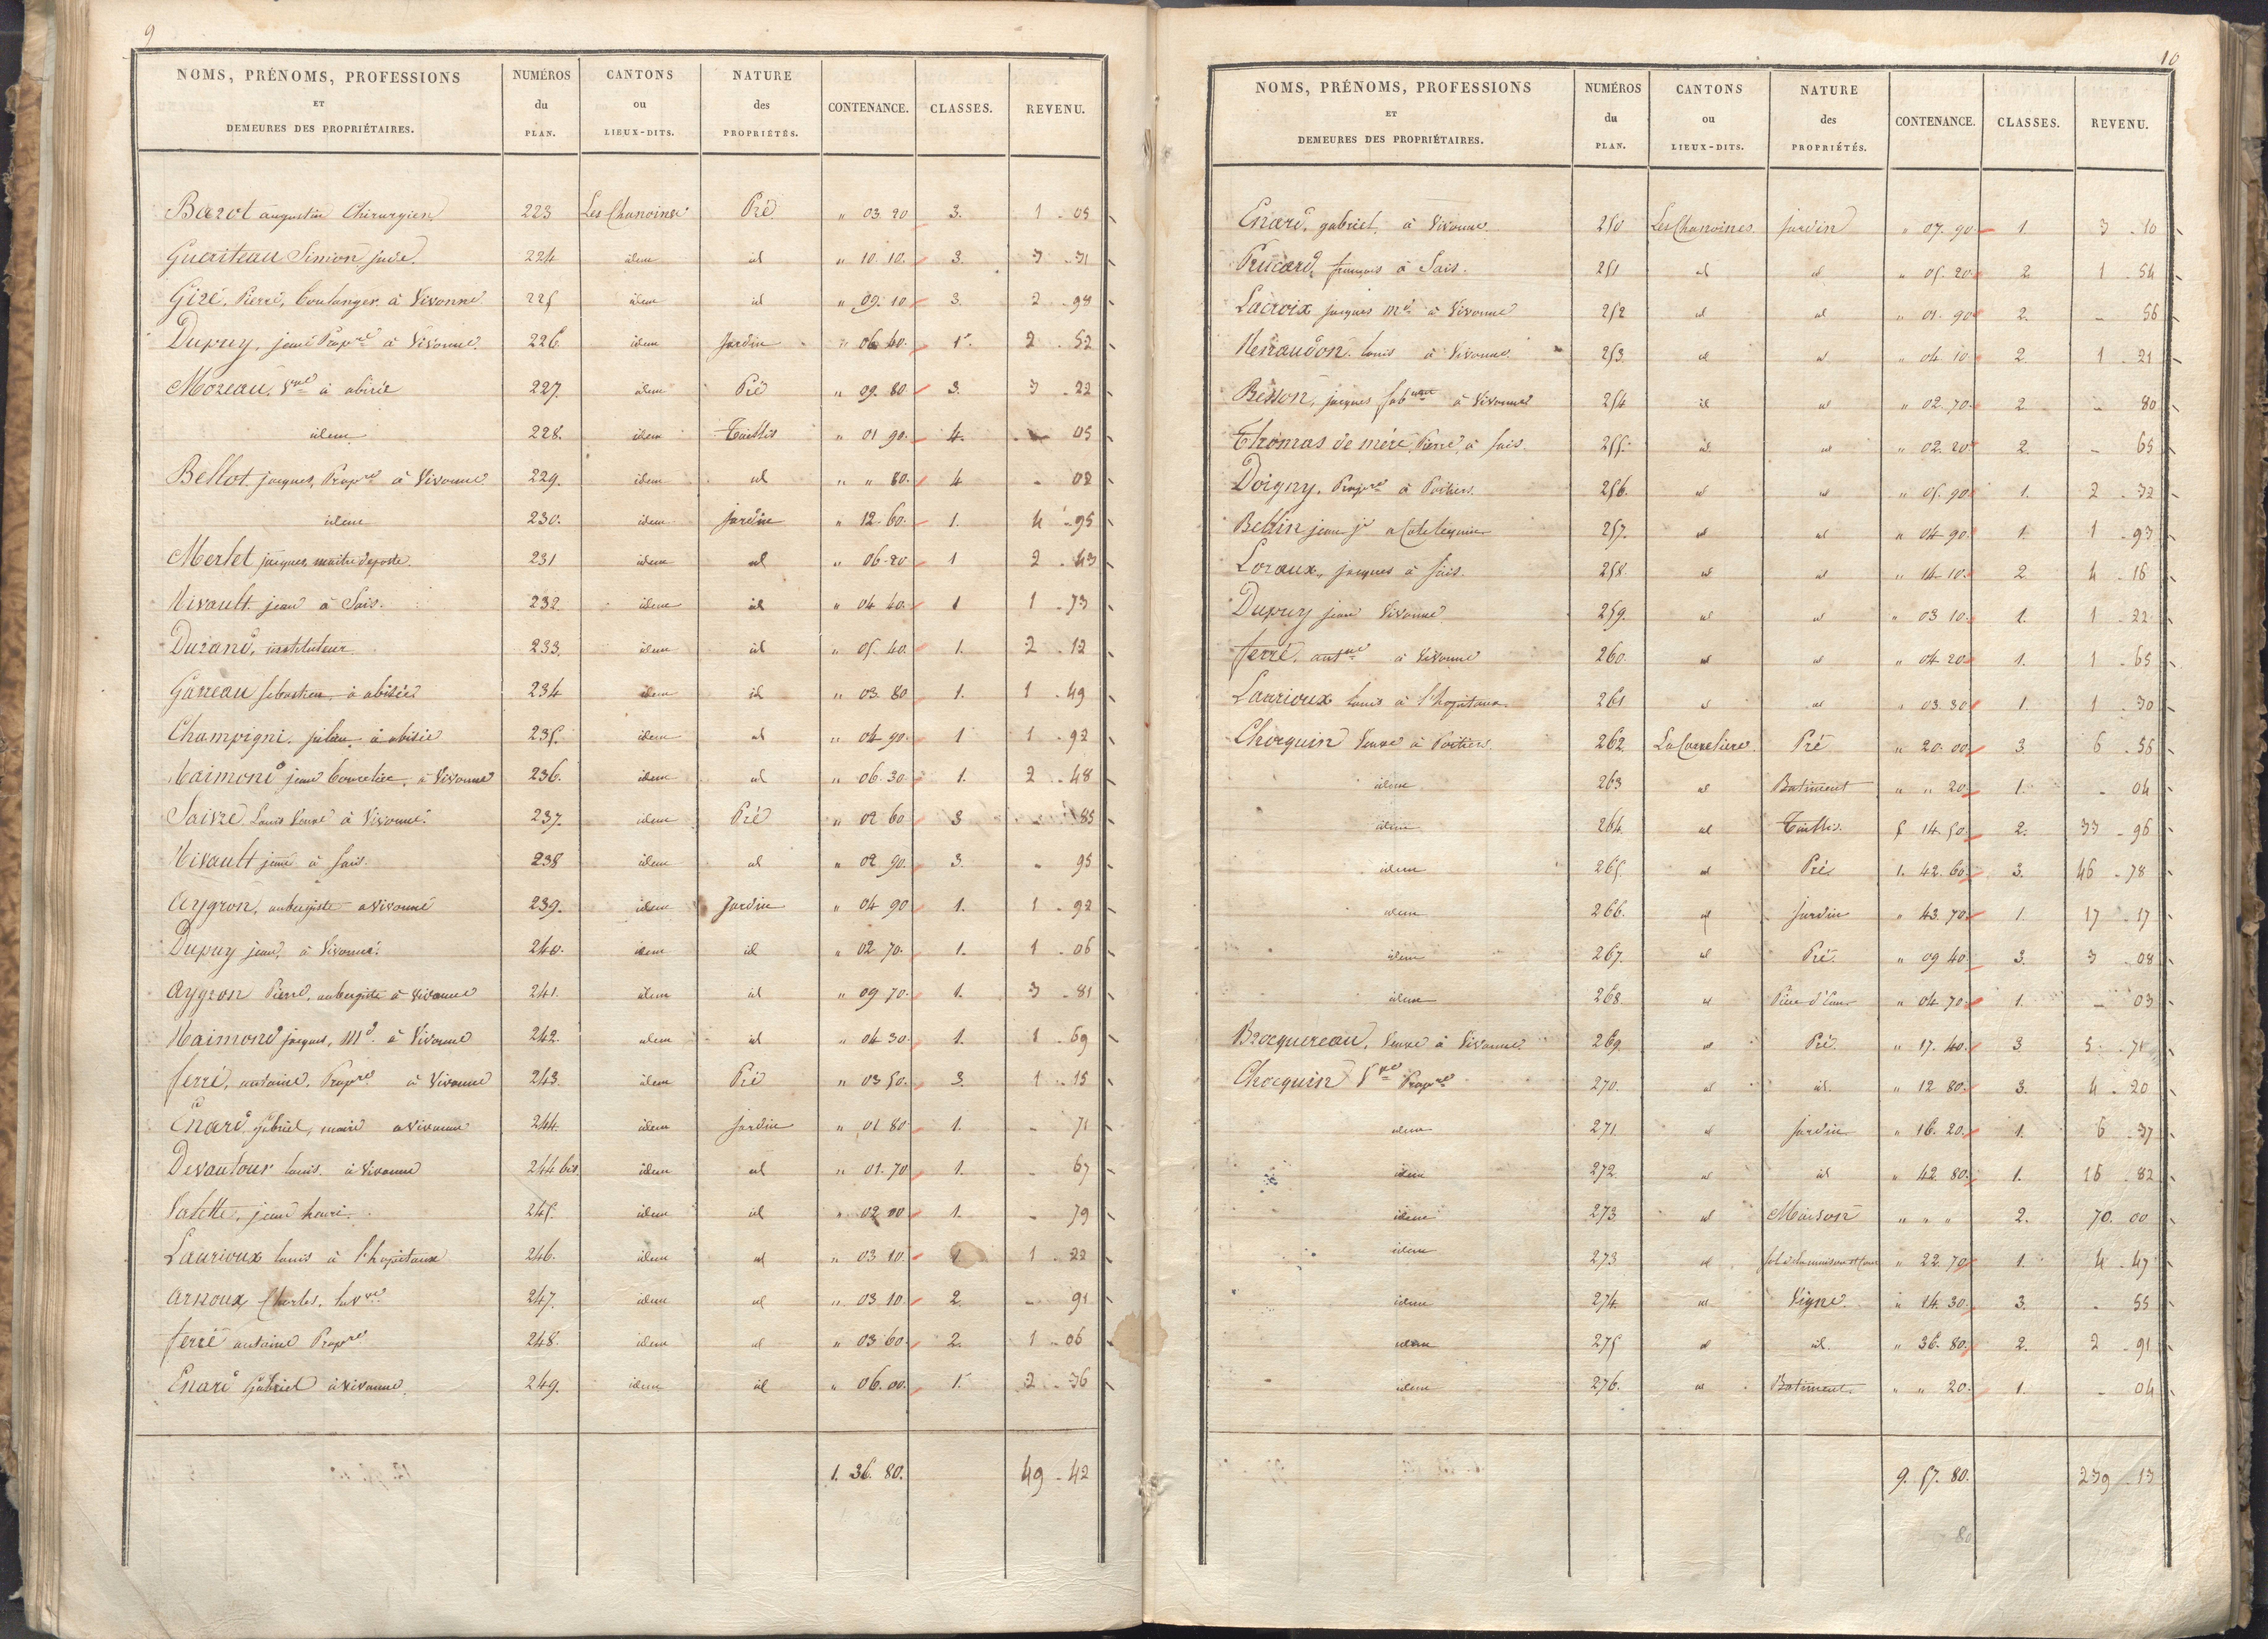 9
NOMS, PRÉNOMS, PROFESSIONS ET DEMEURES DES PROPRIÉTAIRES. NUMÉROS du PLAN. CANTONS ou LIEUX-DITS. NATURE des PROPRIÉTÉS. CONTENANCE. CLASSES. REVENU.
Barot augustin Chirurgien 223 Les Chanoines Pré " 03 20 3. 1 - 05
Simon 224 idem id " 10. 10. 3. 3 - 31
Giré, Pierre, boulanger à Vivonne 225 idem id " 09. 10 3. 2 - 98
Dupuy, jeune Propre à Vivonne. 226. idem Jardin " 06 40. 1. 2 - 52
Moreau, Vve à abisié 227. idem Pré " 09. 80 3. 3 - 22
idem 228. idem Taillis " 01 90. 4. - 05
Bellot jacques, Propre à Vivonne 229. idem id " " 80. 4 - 02
idem 230. idem Jardin " 12. 60. 1. 4 - 95
Merlet jacques, maitre de poste. 231 idem id " 06 - 20 1 2 - 43
Nivault jean à Sais. 232. idem id " 04 40. 1 1 - 73
Durand, instituteur 233. idem id " 05. 40. 1. 2 - 12
Garreau sebastien à abisié 234 idem id " 03. 80 1. 1 - 49
Champigni. à abisié 235. idem id " 04 90. 1 1 - 92
jean à Vivonne 236. idem id " 06. 30 1. 2 - 48
Saivre Louis Veuve à Vivonne. 237. idem Pré " 02 60 3 - 85
Nivault jean à Sais. 238 idem id " 02. 90. 3. " 95
Aygron, aubergiste a vivonne 239. idem Jardin " 04 90 1. 1 - 92
Dupuy jean, à Vivonne. 240. idem id " 02 70. 1. 1 - 06
Aygron Pierre, aubergiste à Vivonne 241. idem id " 09 70. 1. 3 - 81
jacques, Md. à Vivonne 242. idem id " 04 30. 1. 1 - 69
ferré, antoine, Propre à Vivonne 243. idem Pré " 03 50. 3. 1 - 15
Enard gabriel, maire a vivonne 244. idem Jardin " 01 80 1. - 71
Devautour louis. à Vivonne 244 bis idem id " 01. 70 1. - 67
Valette, jean henri. 245. idem id " 02 00 1. - 79
Laurioux louis à l'hopitaux 246. idem id " 03 10. 1. 1 - 22
Arnoux Charles, 247. idem id " 03 10 2. - 91
ferré antoine Propre 248. idem id " 03 60. 2. 1 - 06
Enard Gabriel à vivonne 249. idem id " 06. 00. 1. 2 - 36
1. 36. 80. 49 - 42
10
NOMS, PRÉNOMS, PROFESSIONS ET DEMEURES DES PROPRIÉTAIRES. NUMÉROS du PLAN. CANTONS ou LIEUX-DITS. NATURE des PROPRIÉTÉS. CONTENANCE. CLASSES. REVENU.
Enard, gabriel, à Vivonne. 250 Les Chanoines Jardin " 07. 90 1. 3 - 10
françois à Sais. 251 id id " 05. 20 2 1 - 54
Lacroix jacques Md à Vivonne 252 id id " 01. 90 2. - 56
louis à Vivonne 253. id id " 04 10 2 1 - 21
Besson, jacques à Vivonne 254 id id " 02. 70. 2. - 80
Thomas de mére, Pierre, à Sais. 255. id id " 02. 20 2. - 65
Doigny, Propre à Poitiers. 256. id id " 05. 90 1. 2 - 32
Bellin jean 257. id id " 04 90. 1. 1 - 93
Loraux, jacques à Sais. 258. id id " 14 10. 2. 4 - 16
Dupuy jean Vivonne 259. id id " 03 10. 1. 1 - 22
ferré, antne à Vivonne 260. id id " 04 20 1. 1 - 65
Laurioux louis à l'hopitaux 261 id id " 03. 30 1. 1 - 30
Chocquin Veuve à Poitiers. 262 Pré " 20. 00 3. 6 - 56
idem 263 id Batiment " " 20. 1. - 04
idem 264. id Taillis. 5 14. 50. 2. 33 - 96
idem 265. id Pré 1. 42. 60. 3. 46 - 78
idem 266. id Jardin " 43. 70. 1. 17 - 17
idem 267. id Pré " 09 40. 3. 3 - 08
idem 268. id Pièce d'Eau " 04. 70 1. - 03
Brocquereau, Veuve à Vivonne 269. id Pré " 17. 40. 3 5 - 71
Chocquin Vve Propre 270. id id. " 12 80. 3. 4 - 20
idem 271. id Jardin " 16. 20. 1. 6 - 37
idem 272. id id " 42 80. 1. 16 - 82
idem 273 id Maison " " " 2. 70. 00
idem 273 id Sol de la maison et Cour " 22. 70 1. 4 - 47
idem 274. id Vigne. " 14. 30. 3. - 55
idem 275 id id. " 36. 80. 2. 2 - 91
idem 276. id Batiment. " " 20. 1. - 04
9. 57. 80. 239 - 13
80